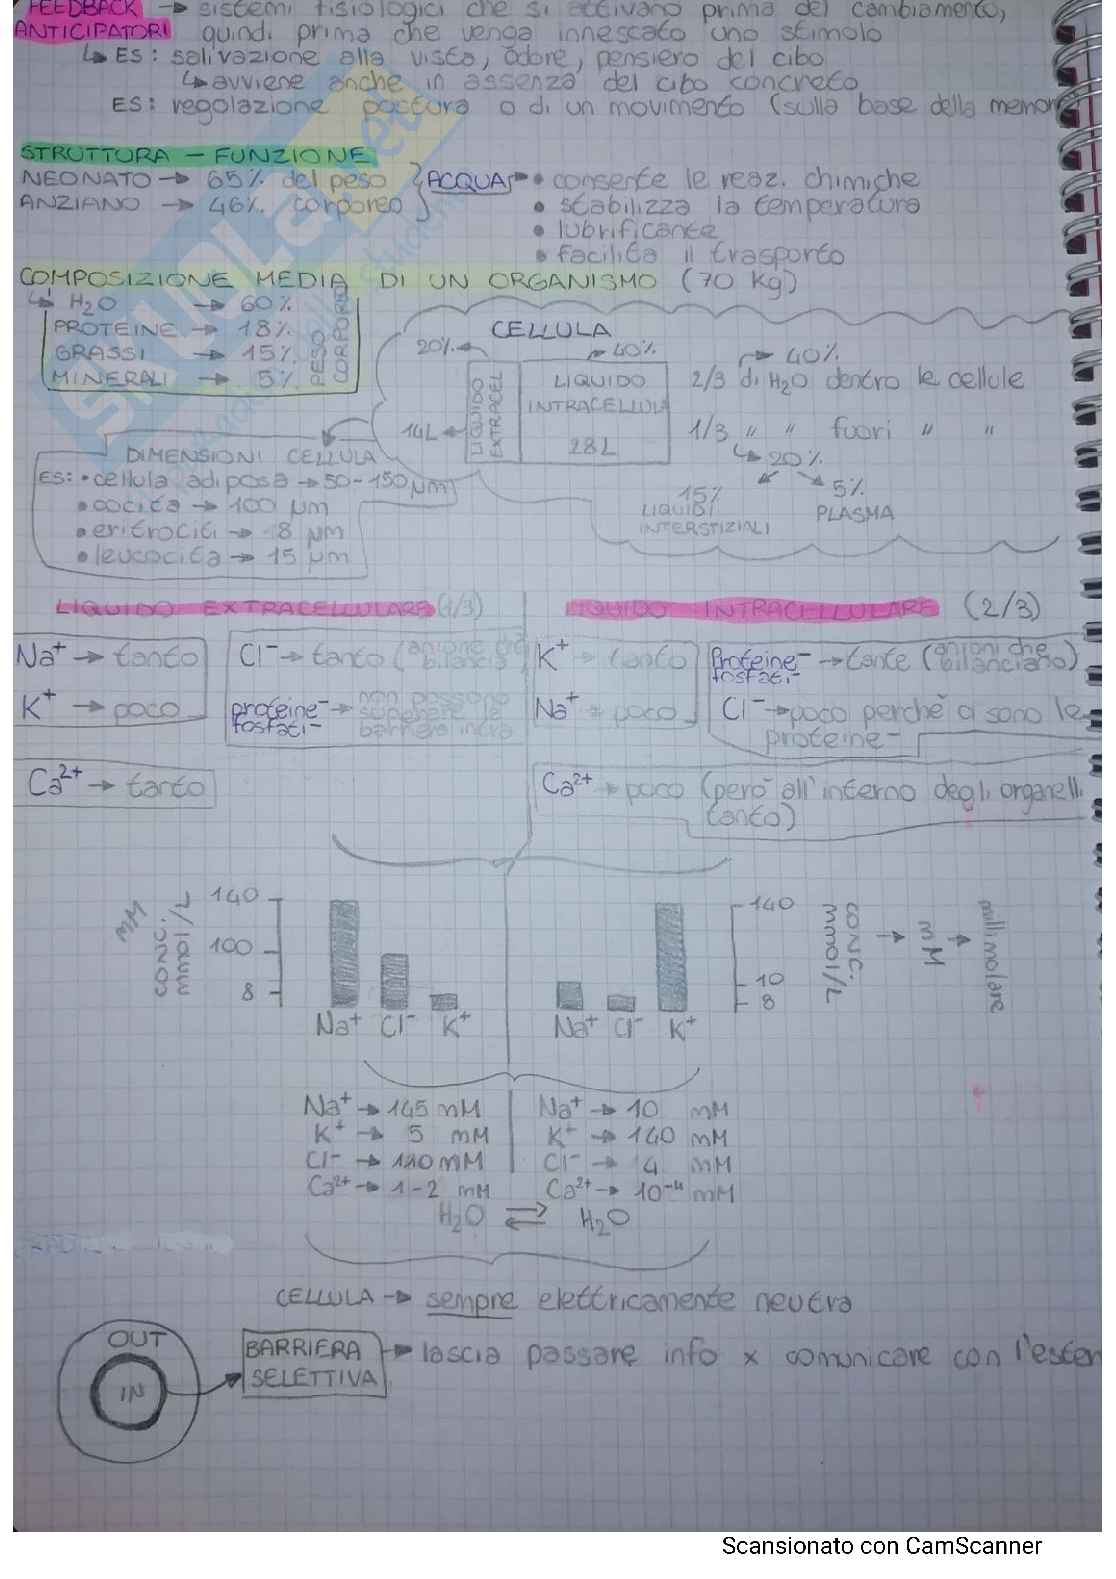 FEEDBACK → sistemi fisiologici che si attivano prima del cambiamento,
ANTICIPATORI quindi prima che venga innescato uno stimolo
↳ ES: salivazione alla vista, odore, pensiero del cibo
↳ avviene anche in assenza del cibo concreto
ES: regolazione postura o di un movimento (sulla base della memor
STRUTTURA - FUNZIONE
NEONATO → 65% del peso
ANZIANO → 46% corporeo
ACQUA → • consente le reaz. chimiche
• stabilizza la temperatura
• lubrificante
• facilita il trasporto
COMPOSIZIONE MEDIA DI UN ORGANISMO (70 Kg)
↳ H₂O → 60%
PROTEINE → 18%
GRASSI → 15%
MINERALI → 5%
PESO CORPOREO
CELLULA
20% ← → 40%
LIQUIDO EXTRACEL
LIQUIDO
INTRACELLULA
28L
14L ←
→ 40%
2/3 di H₂O dentro le cellule
1/3 " " fuori " "
↳ 20%
15%
LIQUIDI
INTERSTIZIALI
5%
PLASMA
DIMENSIONI CELLULA
ES: • cellula adiposa → 50-150 µm
• oocita → 100 µm
• eritrociti → 8 µm
• leucocita → 15 µm
LIQUIDO EXTRACELLULARE (1/3)
Na⁺ → tanto
K⁺ → poco
Cl⁻ → tanto (anione che bilancia)
proteine⁻ fosfati⁻ → non possono superare la barriera intra
Ca²⁺ → tanto
LIQUIDO INTRACELLULARE (2/3)
K⁺ → tanto
Na⁺ → poco
Proteine⁻ fosfati⁻ → tante (anioni che bilanciano)
Cl⁻ → poco perché ci sono le
proteine⁻
Ca²⁺ → poco (però all'interno degli organelli
tanto)
mM
CONC. mmol/L
140
100
8
Na⁺ Cl⁻ K⁺
140
10
8
Na⁺ Cl⁻ K⁺
CONC. mmol/L → mM → millimolare
Na⁺ → 145 mM
K⁺ → 5 mM
Cl⁻ → 110 mM
Ca²⁺ → 1-2 mM
Na⁺ → 10 mM
K⁺ → 140 mM
Cl⁻ → 4 mM
Ca²⁺ → 10⁻⁴ mM
H₂O ⇌ H₂O
CELLULA → sempre elettricamente neutra
OUT
IN
BARRIERA
SELETTIVA
→ lascia passare info x comunicare con l'ester
Scansionato con CamScanner